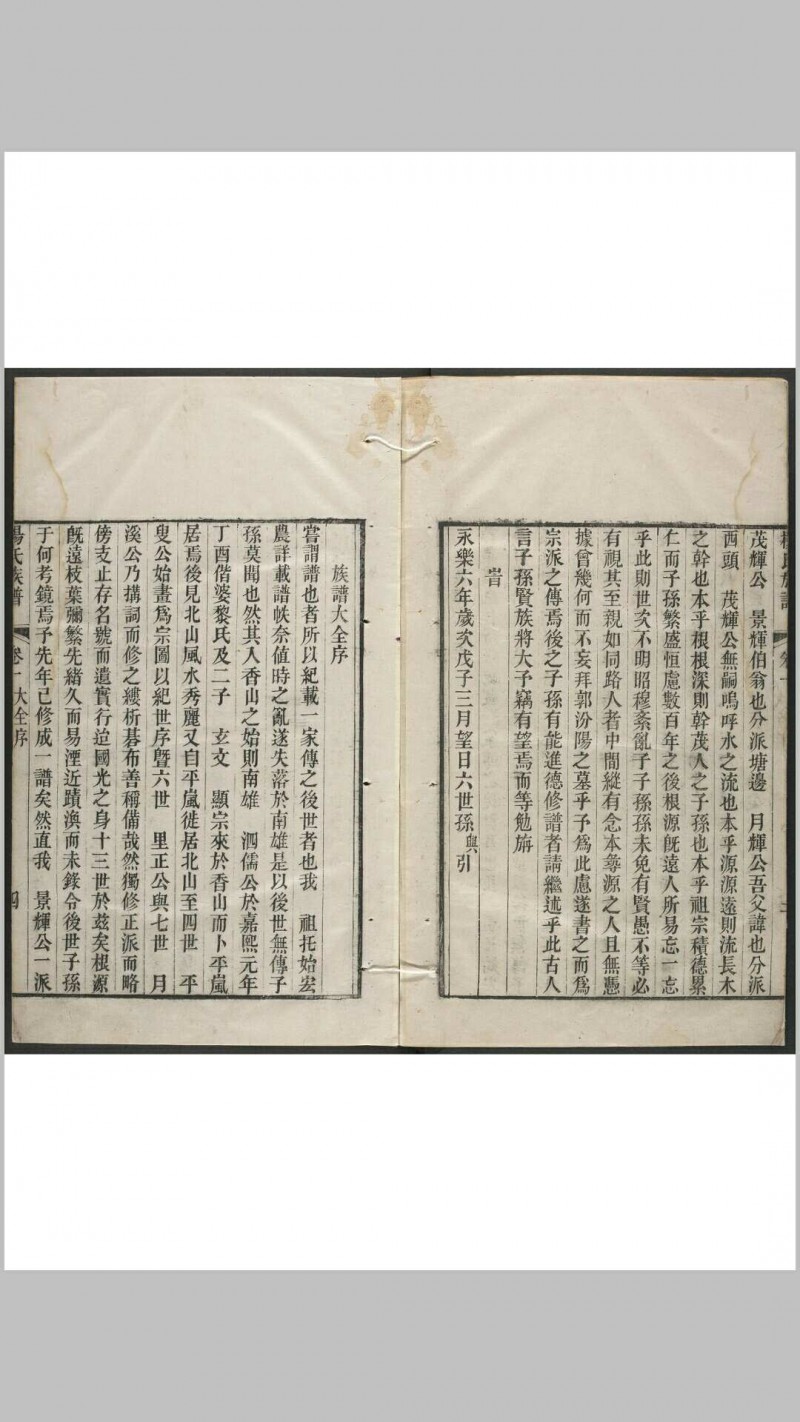 茂輝公　景輝伯翁也分派塘邊　月輝公吾父諱也分派
西頭　茂輝公無嗣嗚呼水之流也本乎源源遠則流長木
之幹也本乎根根深則幹茂人之子孫也本乎祖宗積德累
仁而子孫繁盛恒慮數百年之後根源旣遠人所易忘一忘
乎此則世次不明昭穆紊亂子子孫孫未免有賢愚不等必
有視其至親如同路人者中間縱有念本尋源之人且無憑
據曾幾何而不妄拜郭汾陽之墓乎予爲此慮遂書之而爲
宗派之傳焉後之子孫有能進德修譜者請繼述乎此古人
言子孫賢族將大予竊有望焉而等勉旃
旹
永樂六年歲次戊子三月望日六世孫與引
族譜大全序
嘗謂譜也者所以紀載一家傳之後世者也我　祖托始宏
農詳載譜帙奈值時之亂遂失落於南雄是以後世無傳子
孫莫聞也然其入香山之始則南雄　泗儒公於嘉熙元年
丁酉偕婆黎氏及二子　玄文　顯宗來於香山而卜平嵐
居焉後見北山風水秀麗又自平嵐徙居北山至四世　平
叟公始畫爲宗圖以紀世序曁六世　里正公與七世　月
溪公乃搆詞而修之縷析碁布善稱備哉然獨修正派而略
傍支止存名號而遺實行迨國光之身十三世於兹矣根源
旣遠枝葉彌繁先緒久而易湮近蹟渙而未錄令後世子孫
于何考鏡焉予先年已修成一譜矣然直我　景輝公一派
楊氏族譜　卷一大全序　四